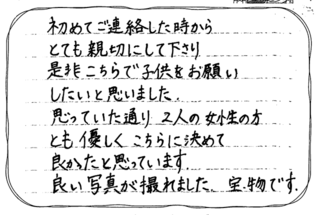 初めてご連絡した時から
とても親切にして下さり
是非こちらで子供をお願い
したいと思いました.
思っていた通り 2人の女性の方
とも優しく こちらに決めて
良かったと思っています.
良い写真が撮れました、宝物です.